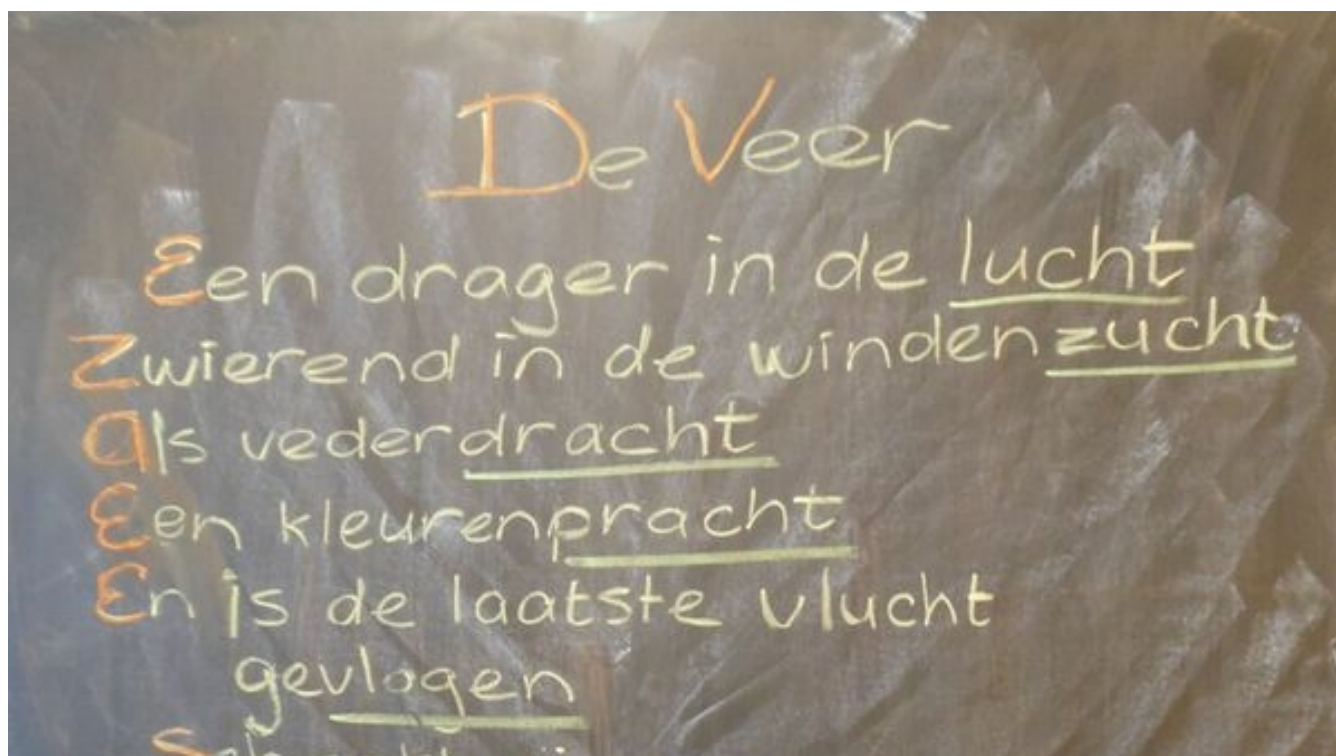 De Veer
Een drager in de lucht
Zwierend in de windenzucht
als vederdracht
Een kleurenpracht
En is de laatste vlucht
gevlogen